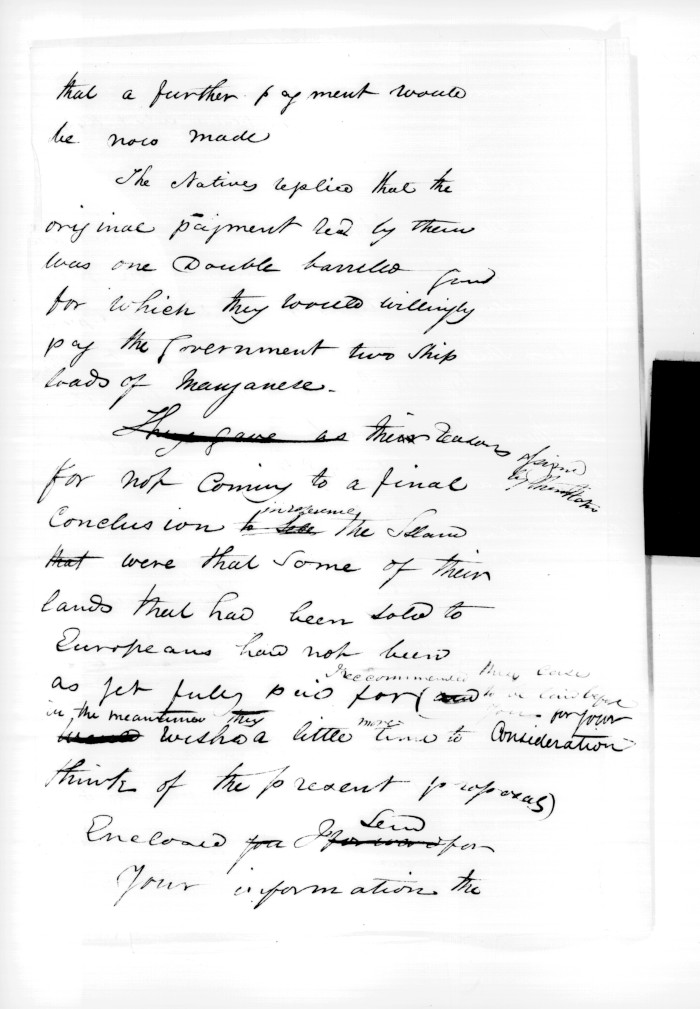 that a further payment would
be now made
The Natives replied that the
original payment recd by them
was one Double barrelled Gun
for which they would willingly
pay the Government two Ship
loads of Manganese.
They gave as their Reasons assigned
for not Coming to a final
Conclusion to in reference the Island
that were that Some of their
lands that had been sold to
Europeans had not been
as yet fully paid for (and
Reccommended their case
to be laid before
you for your
in the meantime they
would wished a little more time to Consideration
think of the present proposals)
Send
Enclosed you I forward for
Your information the